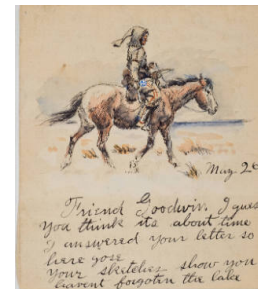 May 2
Friend Goodwin. I gues
you think its about time
I answered your letter so
here gose
Your sketches show you
havent forgoten the lake